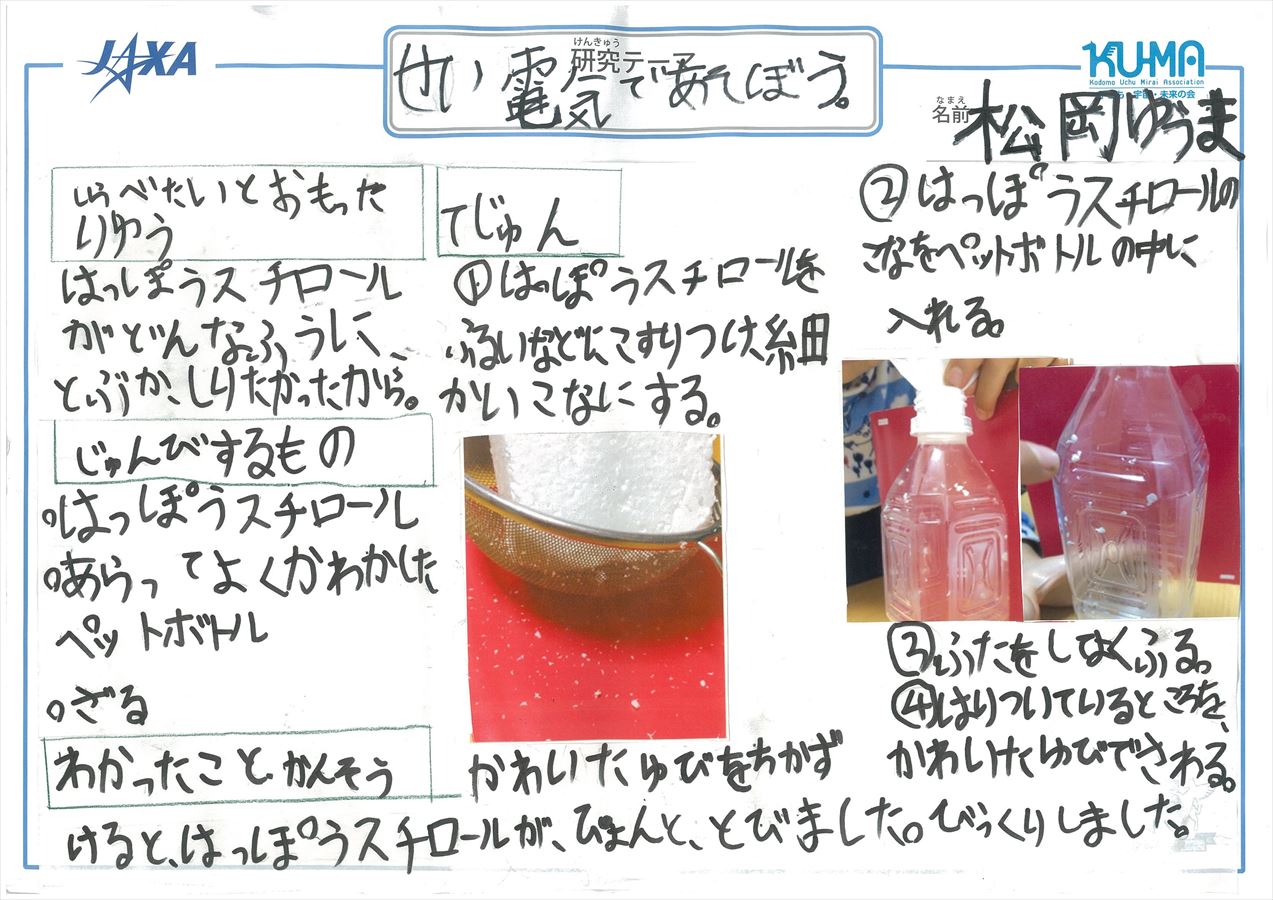 JAXA
けんきゅう
研究テーマ
せい電気であそぼう。
KUMA
Kodomo Uchu Mirai Association
宇宙・未来の会
なまえ
名前
松岡ゆうま
しらべたいとおもった
りゆう
はっぽうスチロール
がどんなふうに、
とぶか、しりたかったから。
じゅんびするもの
○はっぽうスチロール
○あらってよくかわかした
ペットボトル
○ざる
てじゅん
①はっぽうスチロールを
ふるいなどにこすりつけ、細
かいこなにする。
②はっぽうスチロールの
こなをペットボトルの中に
入れる。
③ふたをしてよくふる。
④はりついているところを、
かわいたゆびでさわる。
わかったこと、かんそう
かわいたゆびをちかず
けると、はっぽうスチロールが、ぴょんと、とびました。びっくりしました。